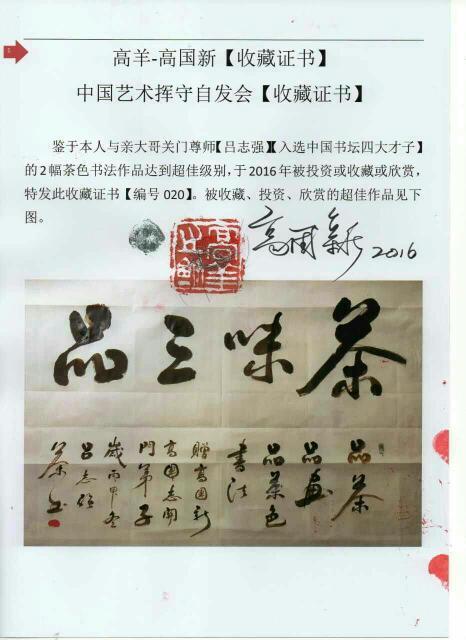 高羊-高国新【收藏证书】
中国艺术挥守自发会【收藏证书】
鉴于本人与亲大哥关门尊师【吕志强】【入选中国书坛四大才子】
的2幅茶色书法作品达到超佳级别，于2016年被投资或收藏或欣赏，
特发此收藏证书【编号020】。被收藏、投资、欣赏的超佳作品见下
图。
高国新 2016
茶味三品
品茶
品画
品茶色
書法
贈高国新
高国志
門弟子
歲丙申冬
吕志强
茶书
1